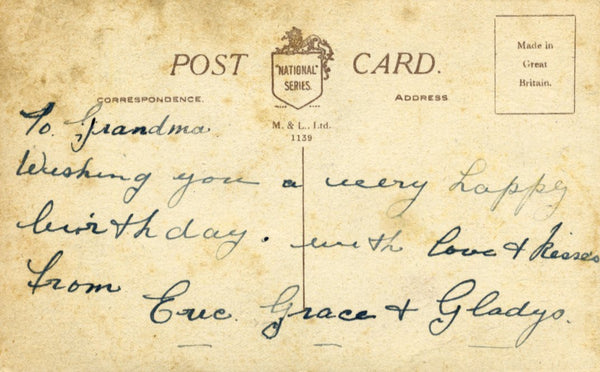 POST CARD.
"NATIONAL"
SERIES.
Made in
Great
Britain.
CORRESPONDENCE.
ADDRESS
M. & L., Ltd.
1139
To. Grandma
Wishing you a very happy
birthday. with love & kisses
from
Eric. Grace & Gladys.